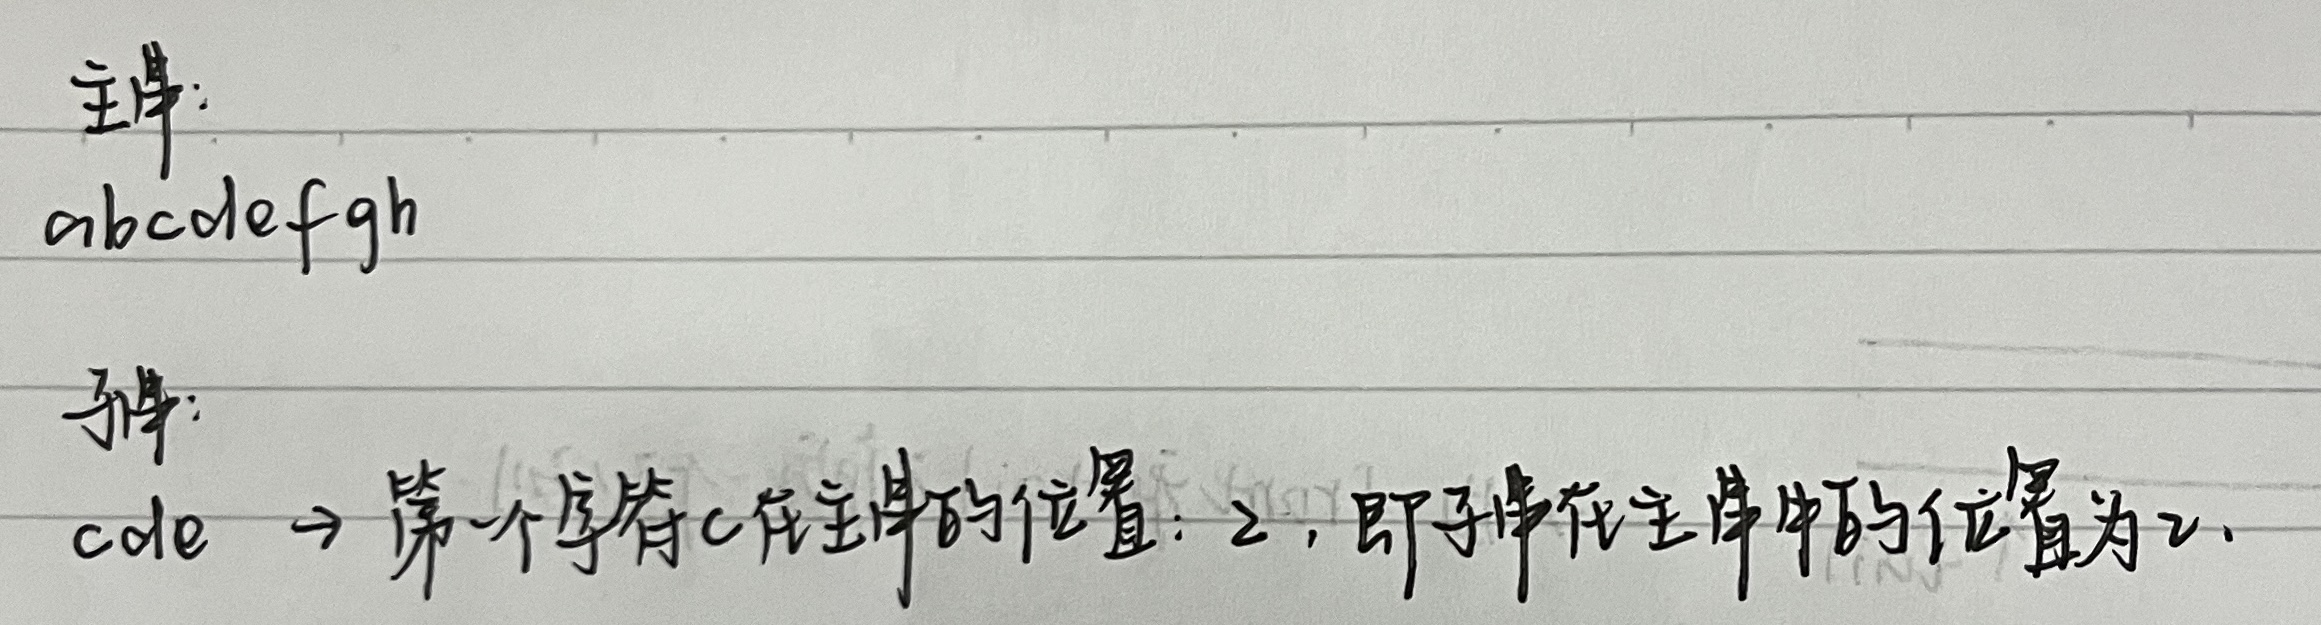 主串:
abcdefgh
子串:
cde → 第一个字符c在主串的位置: 2, 即子串在主串中的位置为2.